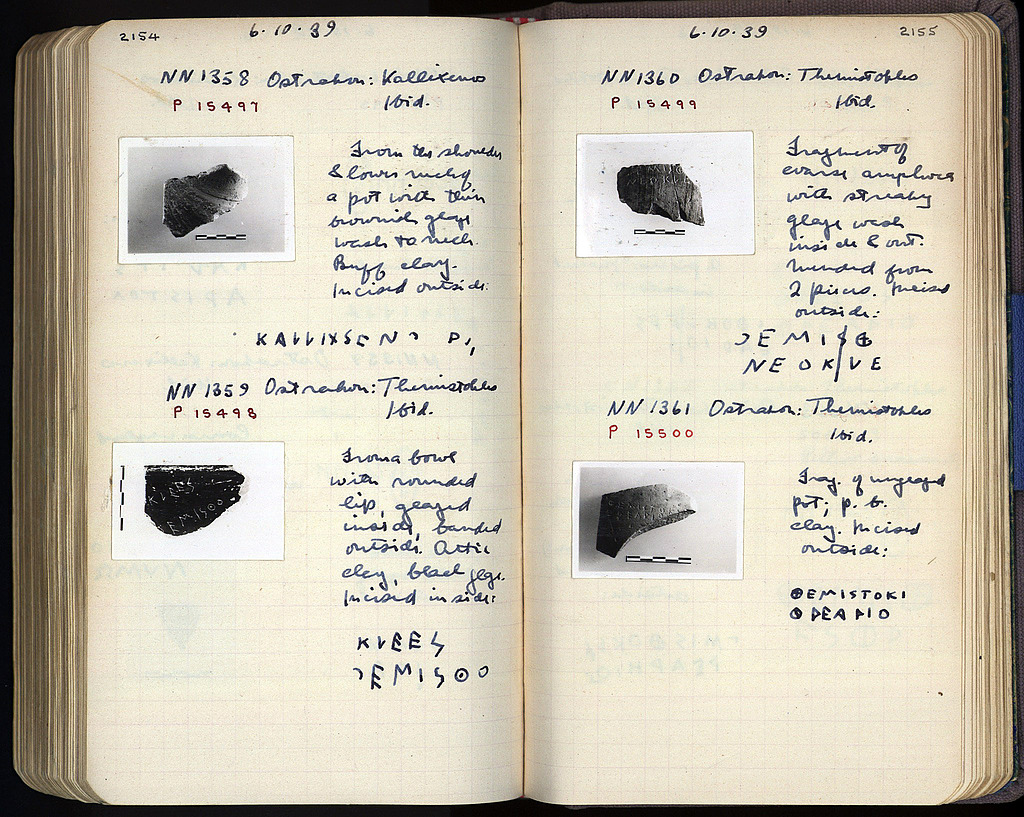 2154
6·10·39
NN 1358 Ostrakon: Kallixenos
P 15497 Ibid.
From the shoulder
& lower neck of
a pot with thin
brownish glaze
wash to neck.
Buff clay.
Incised outside:
KALLIXSEN
NN 1359 Ostrakon: Themistokles
P 15498 Ibid.
From a bowl
with rounded
lip, glazed
inside, banded
outside. Attic
clay, black glaze.
Incised inside:
KVEES
EMISΘO
6·10·39
2155
NN 1360 Ostrakon: Themistokles
P 15499 Ibid.
Fragment of
coarse amphora
with streaky
glaze wash
inside & out.
Mended from
2 pieces. Incised
outside:
EMISΘ
NEOKVE
NN 1361 Ostrakon: Themistokles
P 15500 Ibid.
Frag. of unglazed
pot; p. b.
clay. Incised
outside:
ΘEMISTOKI
ΘPEAPIO